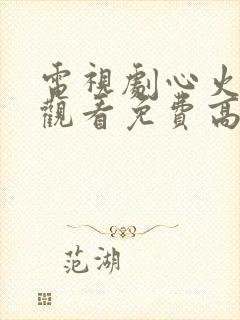 電視劇心火
觀看免費高
范湖